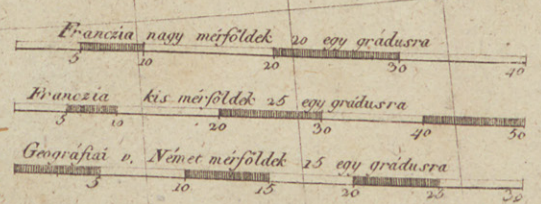 Franczia nagy mérföldek 20 egy grádusra
5 10 20 30 40
Franczia kis mérföldek 25 egy grádusra
5 10 20 30 40 50
Geográfiai v. Német mérföldek 15 egy grádusra
5 10 15 20 25 30